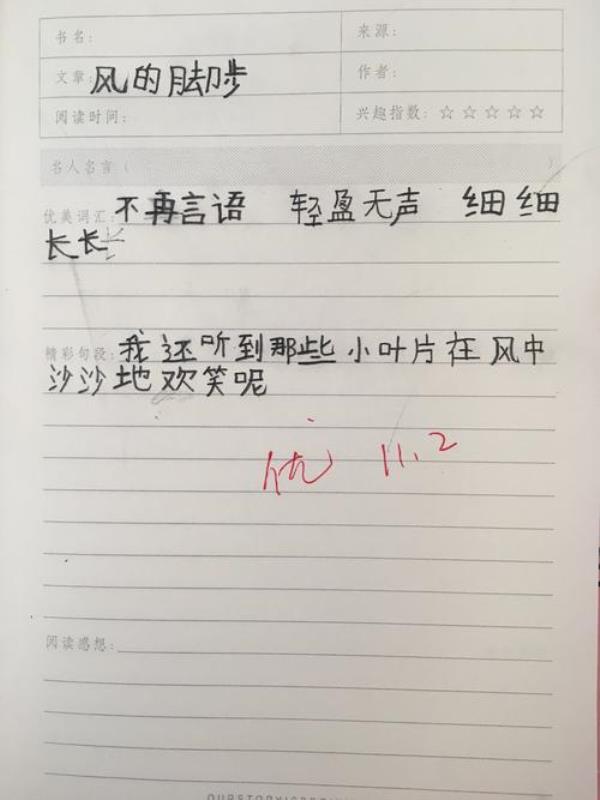 书名: 来源:
文章: 风的脚步 作者:
阅读时间: 兴趣指数: ☆☆☆☆☆
名人名言( )
优美词汇: 不再言语 轻盈无声 细细
长长
精彩句段: 我还听到那些小叶片在风中
沙沙地欢笑呢
优 11.2
阅读感想: